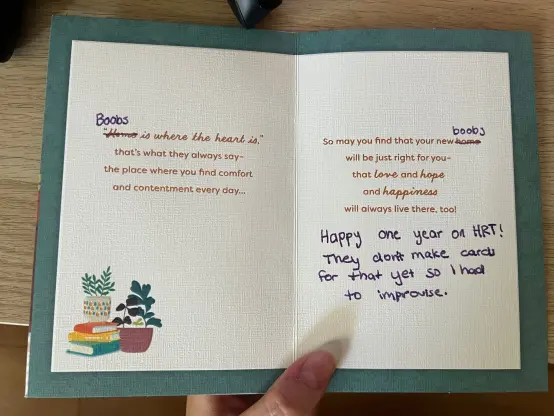 Boobs
"Home is where the heart is,"
that's what they always say–
the place where you find comfort
and contentment every day...
boobs
So may you find that your new home
will be just right for you–
that love and hope
and happiness
will always live there, too!
Happy one year on HRT!
They don't make cards
for that yet so I had
to improvise.